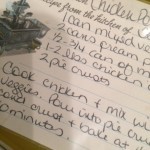 Chicken Po
Recipe from the kitchen of
1 can mixed ve
2 cans cream p
1/2-3/4 can of m
1-2 lbs chicken
2 pie crusts
Cook chicken + mix w
veggies. Pour into pie cr
crust + bake at
minutes.